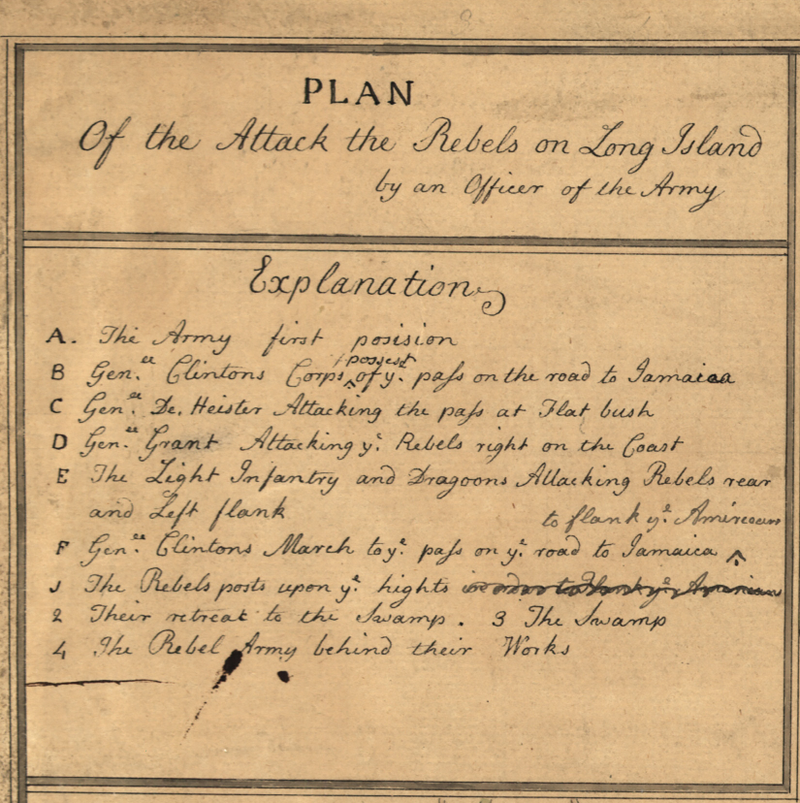 PLAN
Of the Attack the Rebels on Long Island
by an Officer of the Army
Explanation
A. The Army first posision
possest
B Gen.ll Clintons Corps ^ of y.e pass on the road to Jamaica
C Gen.ll De. Heister Attacking the pass at Flat bush
D Gen.ll Grant Attacking y.e Rebels right on the Coast
E The Light Infantry and Dragoons Attacking Rebels rear
and Left flank
to flank y.e Amirecans
F Gen.ll Clintons March to y.e pass on y.e road to Jamaica ^
1 The Rebels posts upon y.e hights in order to flank y.e Americans
2 Their retreat to the Swamp. 3 The Swamp
4 The Rebel Army behind their Works